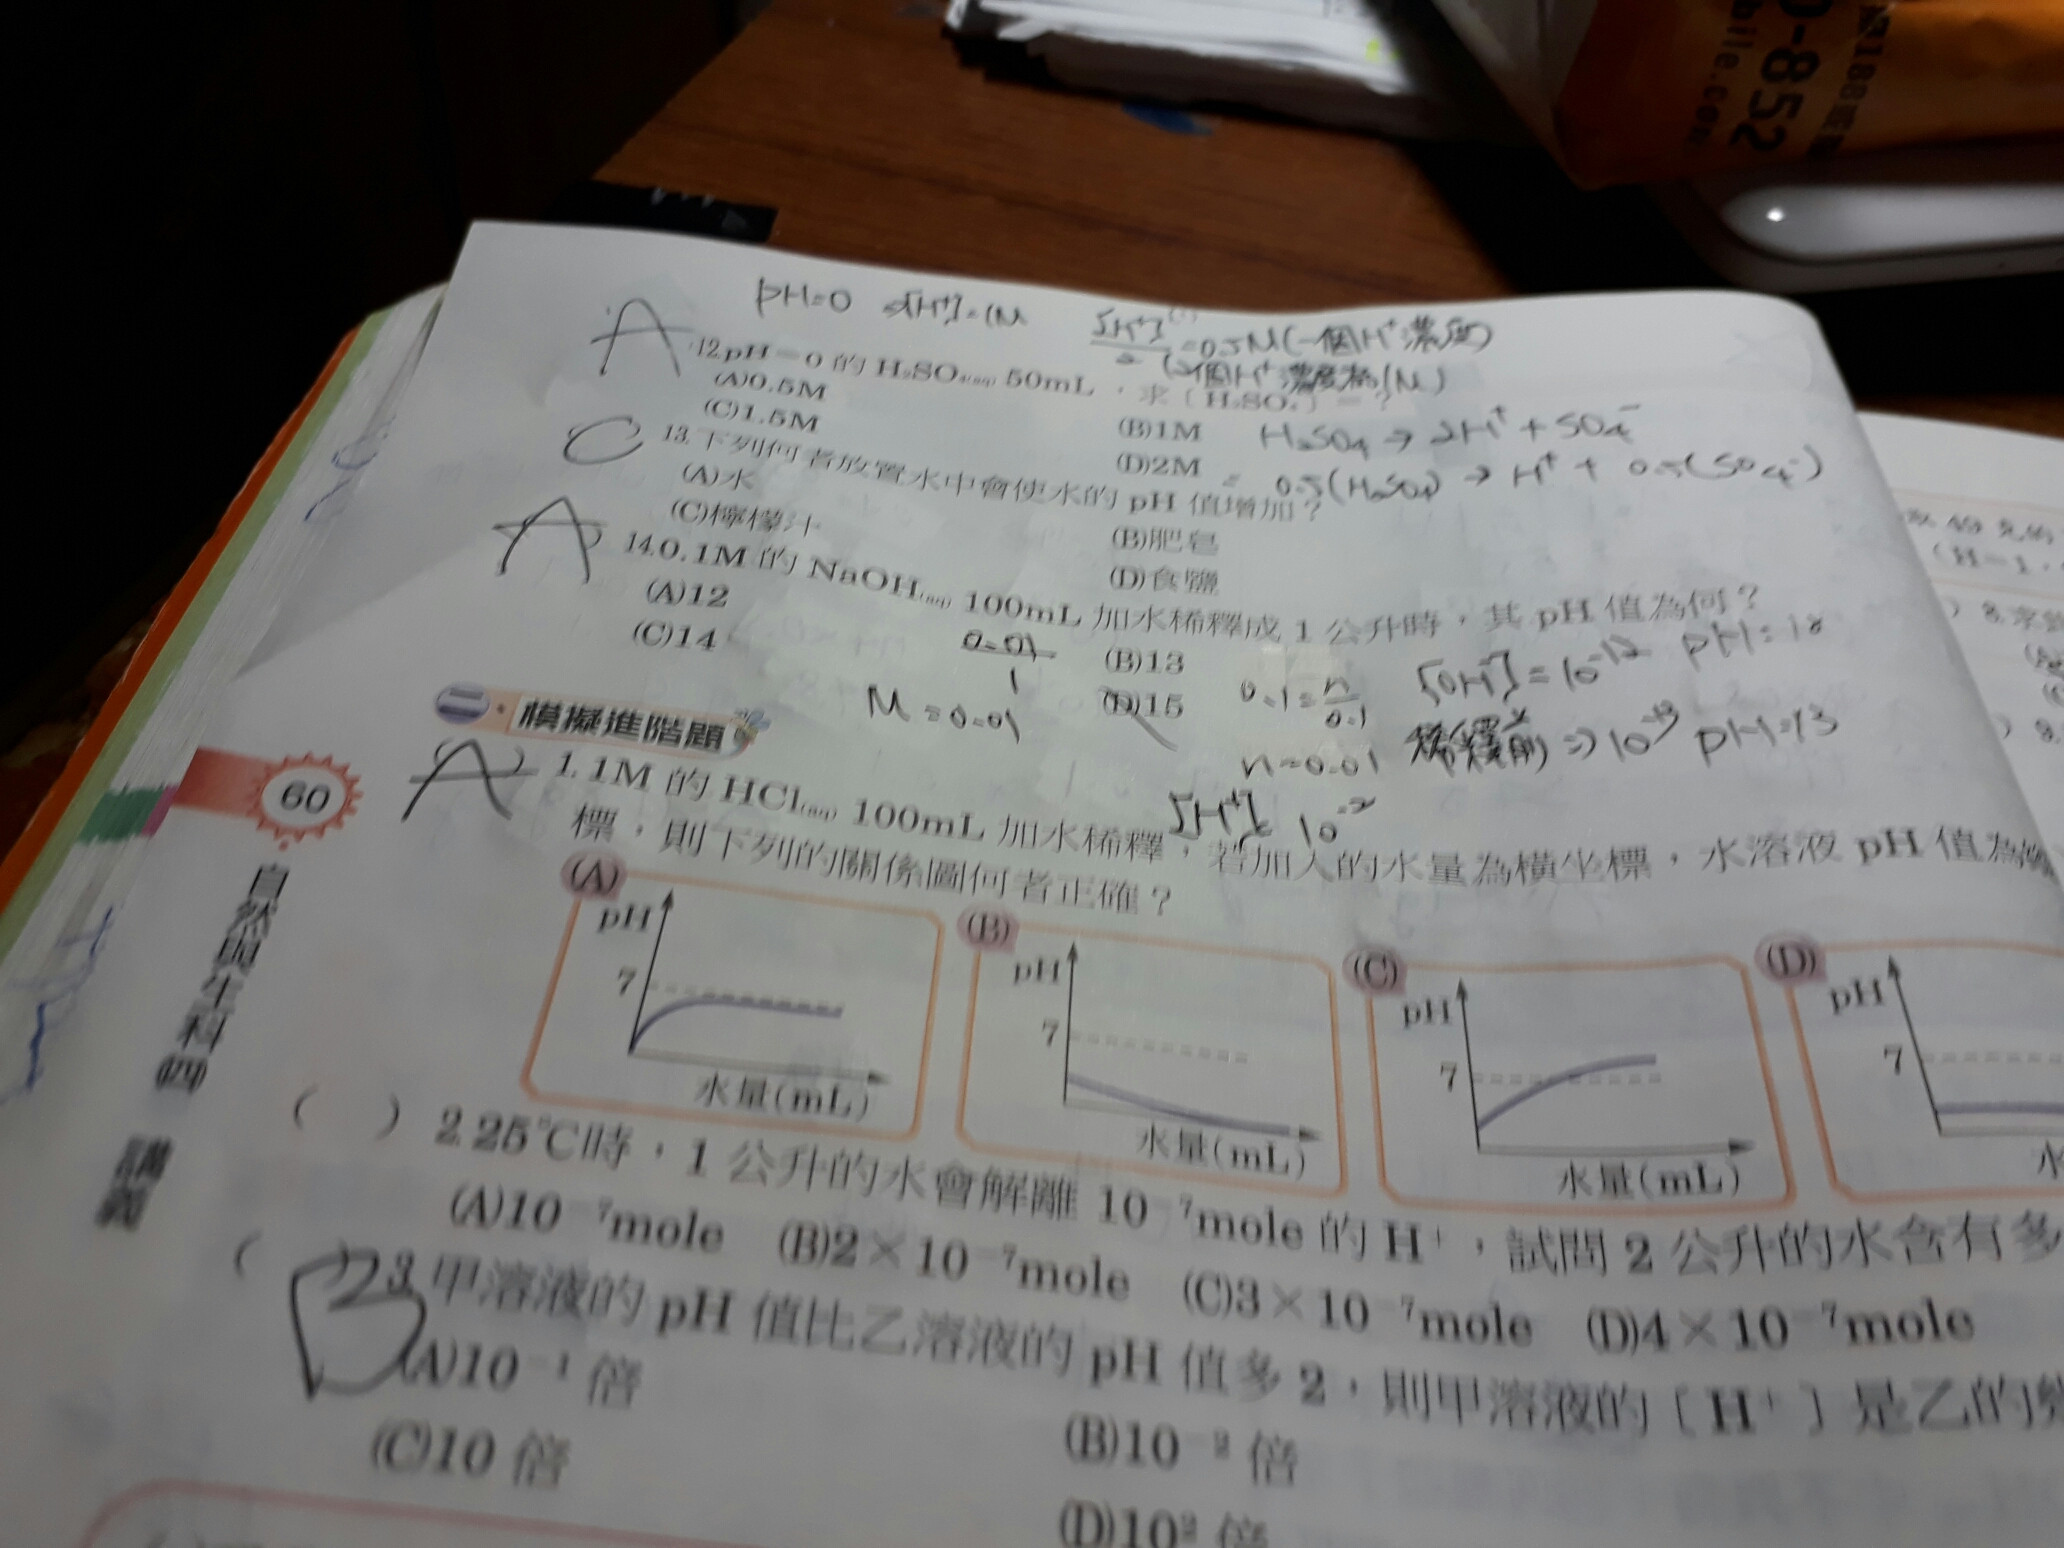 pH=0 [H⁺]=1M [H⁺]/2=0.5M(一個H⁺濃度)
(2個H⁺濃度為1M)
A 12.pH=0的H₂SO₄₍aq₎ 50mL,求〔H₂SO₄〕=?
(A)0.5M (B)1M
(C)1.5M (D)2M
H₂SO₄→2H⁺+SO₄⁻
= 0.5(H₂SO₄)→H⁺+0.5(SO₄⁻)
C 13.下列何者放置水中會使水的pH值增加?
(A)水 (B)肥皂
(C)檸檬汁 (D)食鹽
A 14.0.1M的NaOH₍aq₎ 100mL加水稀釋成1公升時,其pH值為何?
(A)12 (B)13
(C)14 (D)15
0.01/1
M=0.01
0.1=n/0.1
n=0.01
[OH⁻]=10⁻¹² pH=12
稀釋前⇒10⁻¹³ pH=13
[H⁺] 10⁻²
二.模擬進階題
(A) 1.1M的HCl₍aq₎ 100mL加水稀釋,若加入的水量為橫坐標,水溶液pH值為
標,則下列的關係圖何者正確?
(A) (B) (C) (D)
pH pH pH pH
7 7 7 7
水量(mL) 水量(mL) 水量(mL) 水
( ) 2.25℃時,1公升的水會解離10⁻⁷mole的H⁺,試問2公升的水含有多
(A)10⁻⁷mole (B)2×10⁻⁷mole (C)3×10⁻⁷mole (D)4×10⁻⁷mole
( B ) 3.甲溶液的pH值比乙溶液的pH值多2,則甲溶液的〔H⁺〕是乙的
(A)10⁻¹倍 (B)10⁻²倍
(C)10倍 (D)10²倍
60
自然與生活科技(四)
講義
49克的
(H=1
) 8.
0-852
bile.com
188